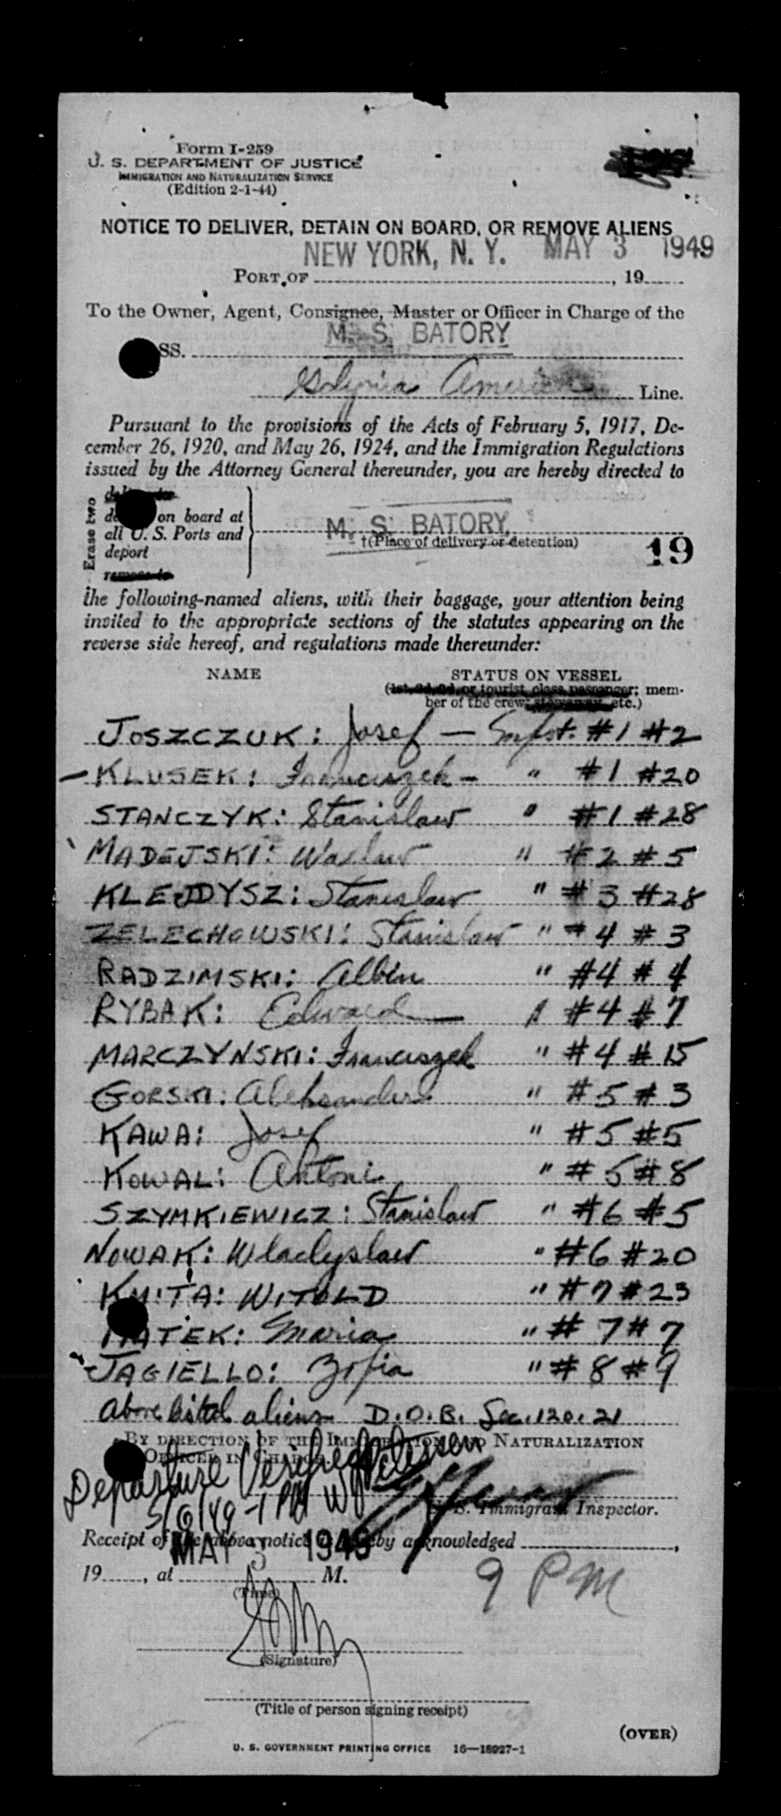 Form I-259
U. S. DEPARTMENT OF JUSTICE
IMMIGRATION AND NATURALIZATION SERVICE
(Edition 2-1-44)
NOTICE TO DELIVER, DETAIN ON BOARD, OR REMOVE ALIENS
NEW YORK, N. Y. MAY 3 1949
PORT OF , 19
To the Owner, Agent, Consignee, Master or Officer in Charge of the
M. S. BATORY
SS.
Gdynia America Line.
Pursuant to the provisions of the Acts of February 5, 1917, De-
cember 26, 1920, and May 26, 1924, and the Immigration Regulations
issued by the Attorney General thereunder, you are hereby directed to
Erase two
on board at
all U. S. Ports and
deport
remove to
M. S. BATORY.
†(Place of delivery or detention)
19
the following-named aliens, with their baggage, your attention being
invited to the appropriate sections of the statutes appearing on the
reverse side hereof, and regulations made thereunder:
NAME STATUS ON VESSEL
(1st, 2d, 3d, or tourist class passenger; mem-
ber of the crew; etc.)
JOSZCZUK: Josef — #1 #2
KLUSEK: Franciszek - " #1 #20
STANCZYK: Stanislaw " #1 #28
MADEJSKI: Waclaw " #2 #5
KLEJDYSZ: Stanislaw " #3 #28
ZELECHOWSKI: Stanislaw " #4 #3
RADZIMSKI: Albin " #4 #4
RYBAK: Edward — " #4 #7
MARCZYNSKI: Franciszek " #4 #15
GORSKI: Aleksander " #5 #3
KAWA: Josef " #5 #5
KOWAL: Antoni " #5 #8
SZYMKIEWICZ: Stanislaw " #6 #5
NOWAK: Wladyslaw " #6 #20
KMITA: WITOLD " #7 #23
Maria " #7 #7
JAGIELLO: Zofia " #8 #9
Above listed aliens D.O.B. Sec. 120.21
BY DIRECTION OF THE IMMIGRATION AND NATURALIZATION
OFFICER IN CHARGE
Departure Verified
5/6/49 - 1 PM
U. S. Immigrant Inspector.
Receipt of the above notice is hereby acknowledged ,
MAY 3 1949
19 , at M. 9 PM
(Time)
(Signature)
(Title of person signing receipt)
(OVER)
U. S. GOVERNMENT PRINTING OFFICE 16—18927-1